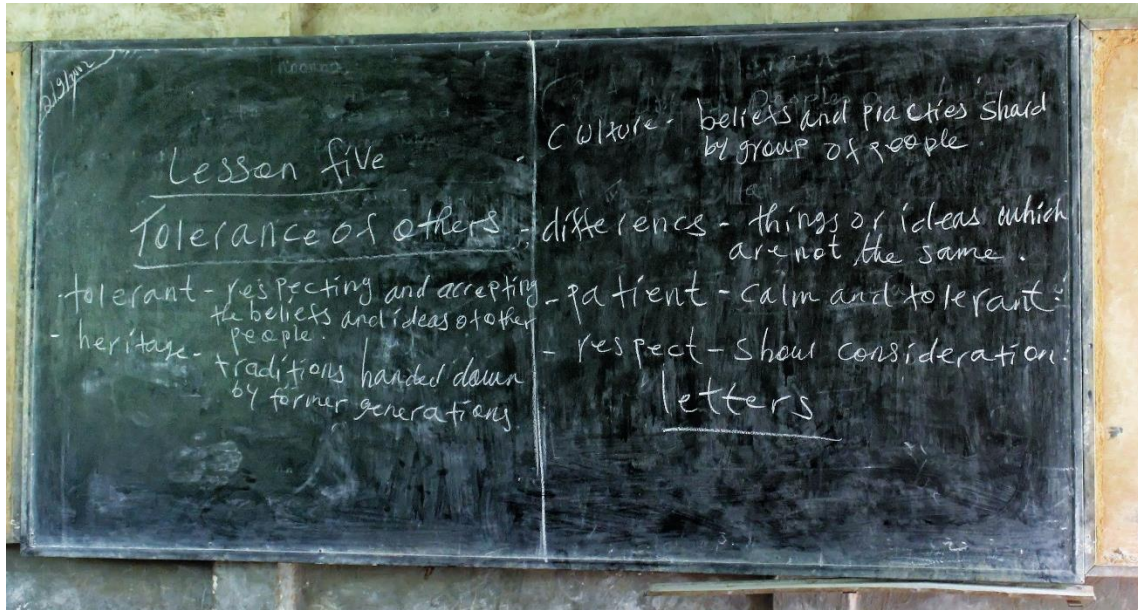 Lesson five
Tolerance of others
- tolerant - respecting and accepting
the beliefs and ideas of other
people.
- heritage - traditions handed down
by former generations
- Culture - beliefs and practies shard
by group of people.
- differences - things or ideas which
are not the same.
- patient - calm and tolerant.
- respect - show consideration.
letters